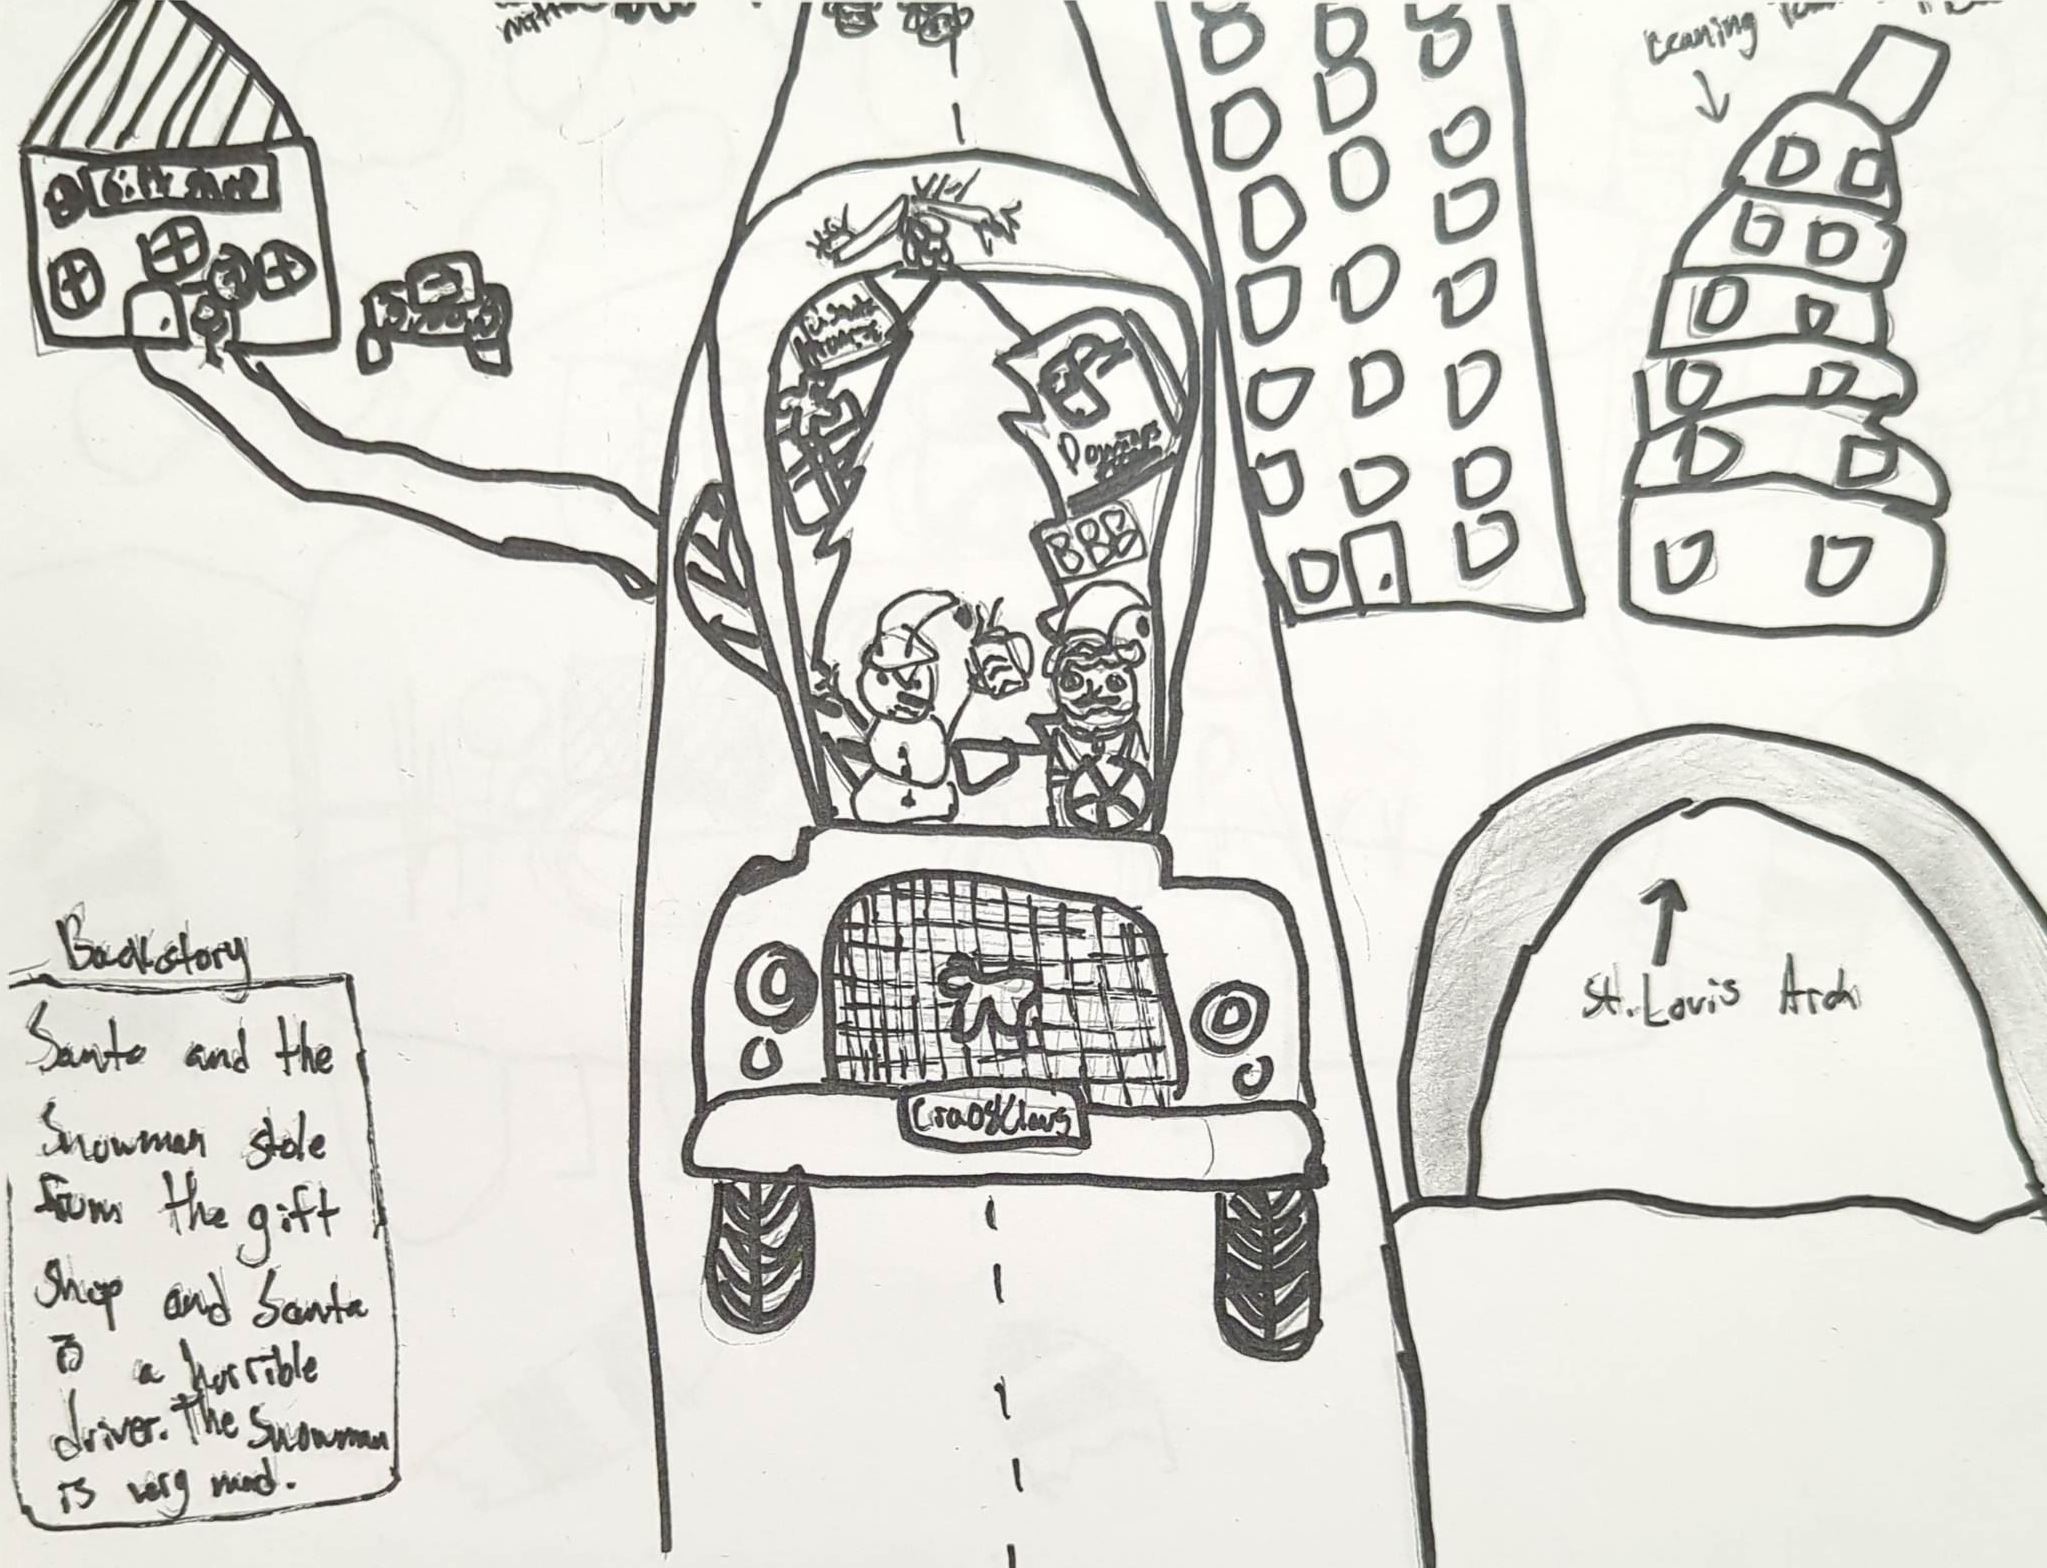 Leaning
Gift Shop
BBB
Backstory
Santa and the
Snowman stole
from the gift
Shop and Santa
is a horrible
driver. The Snowman
is very mad.
St. Louis Arch